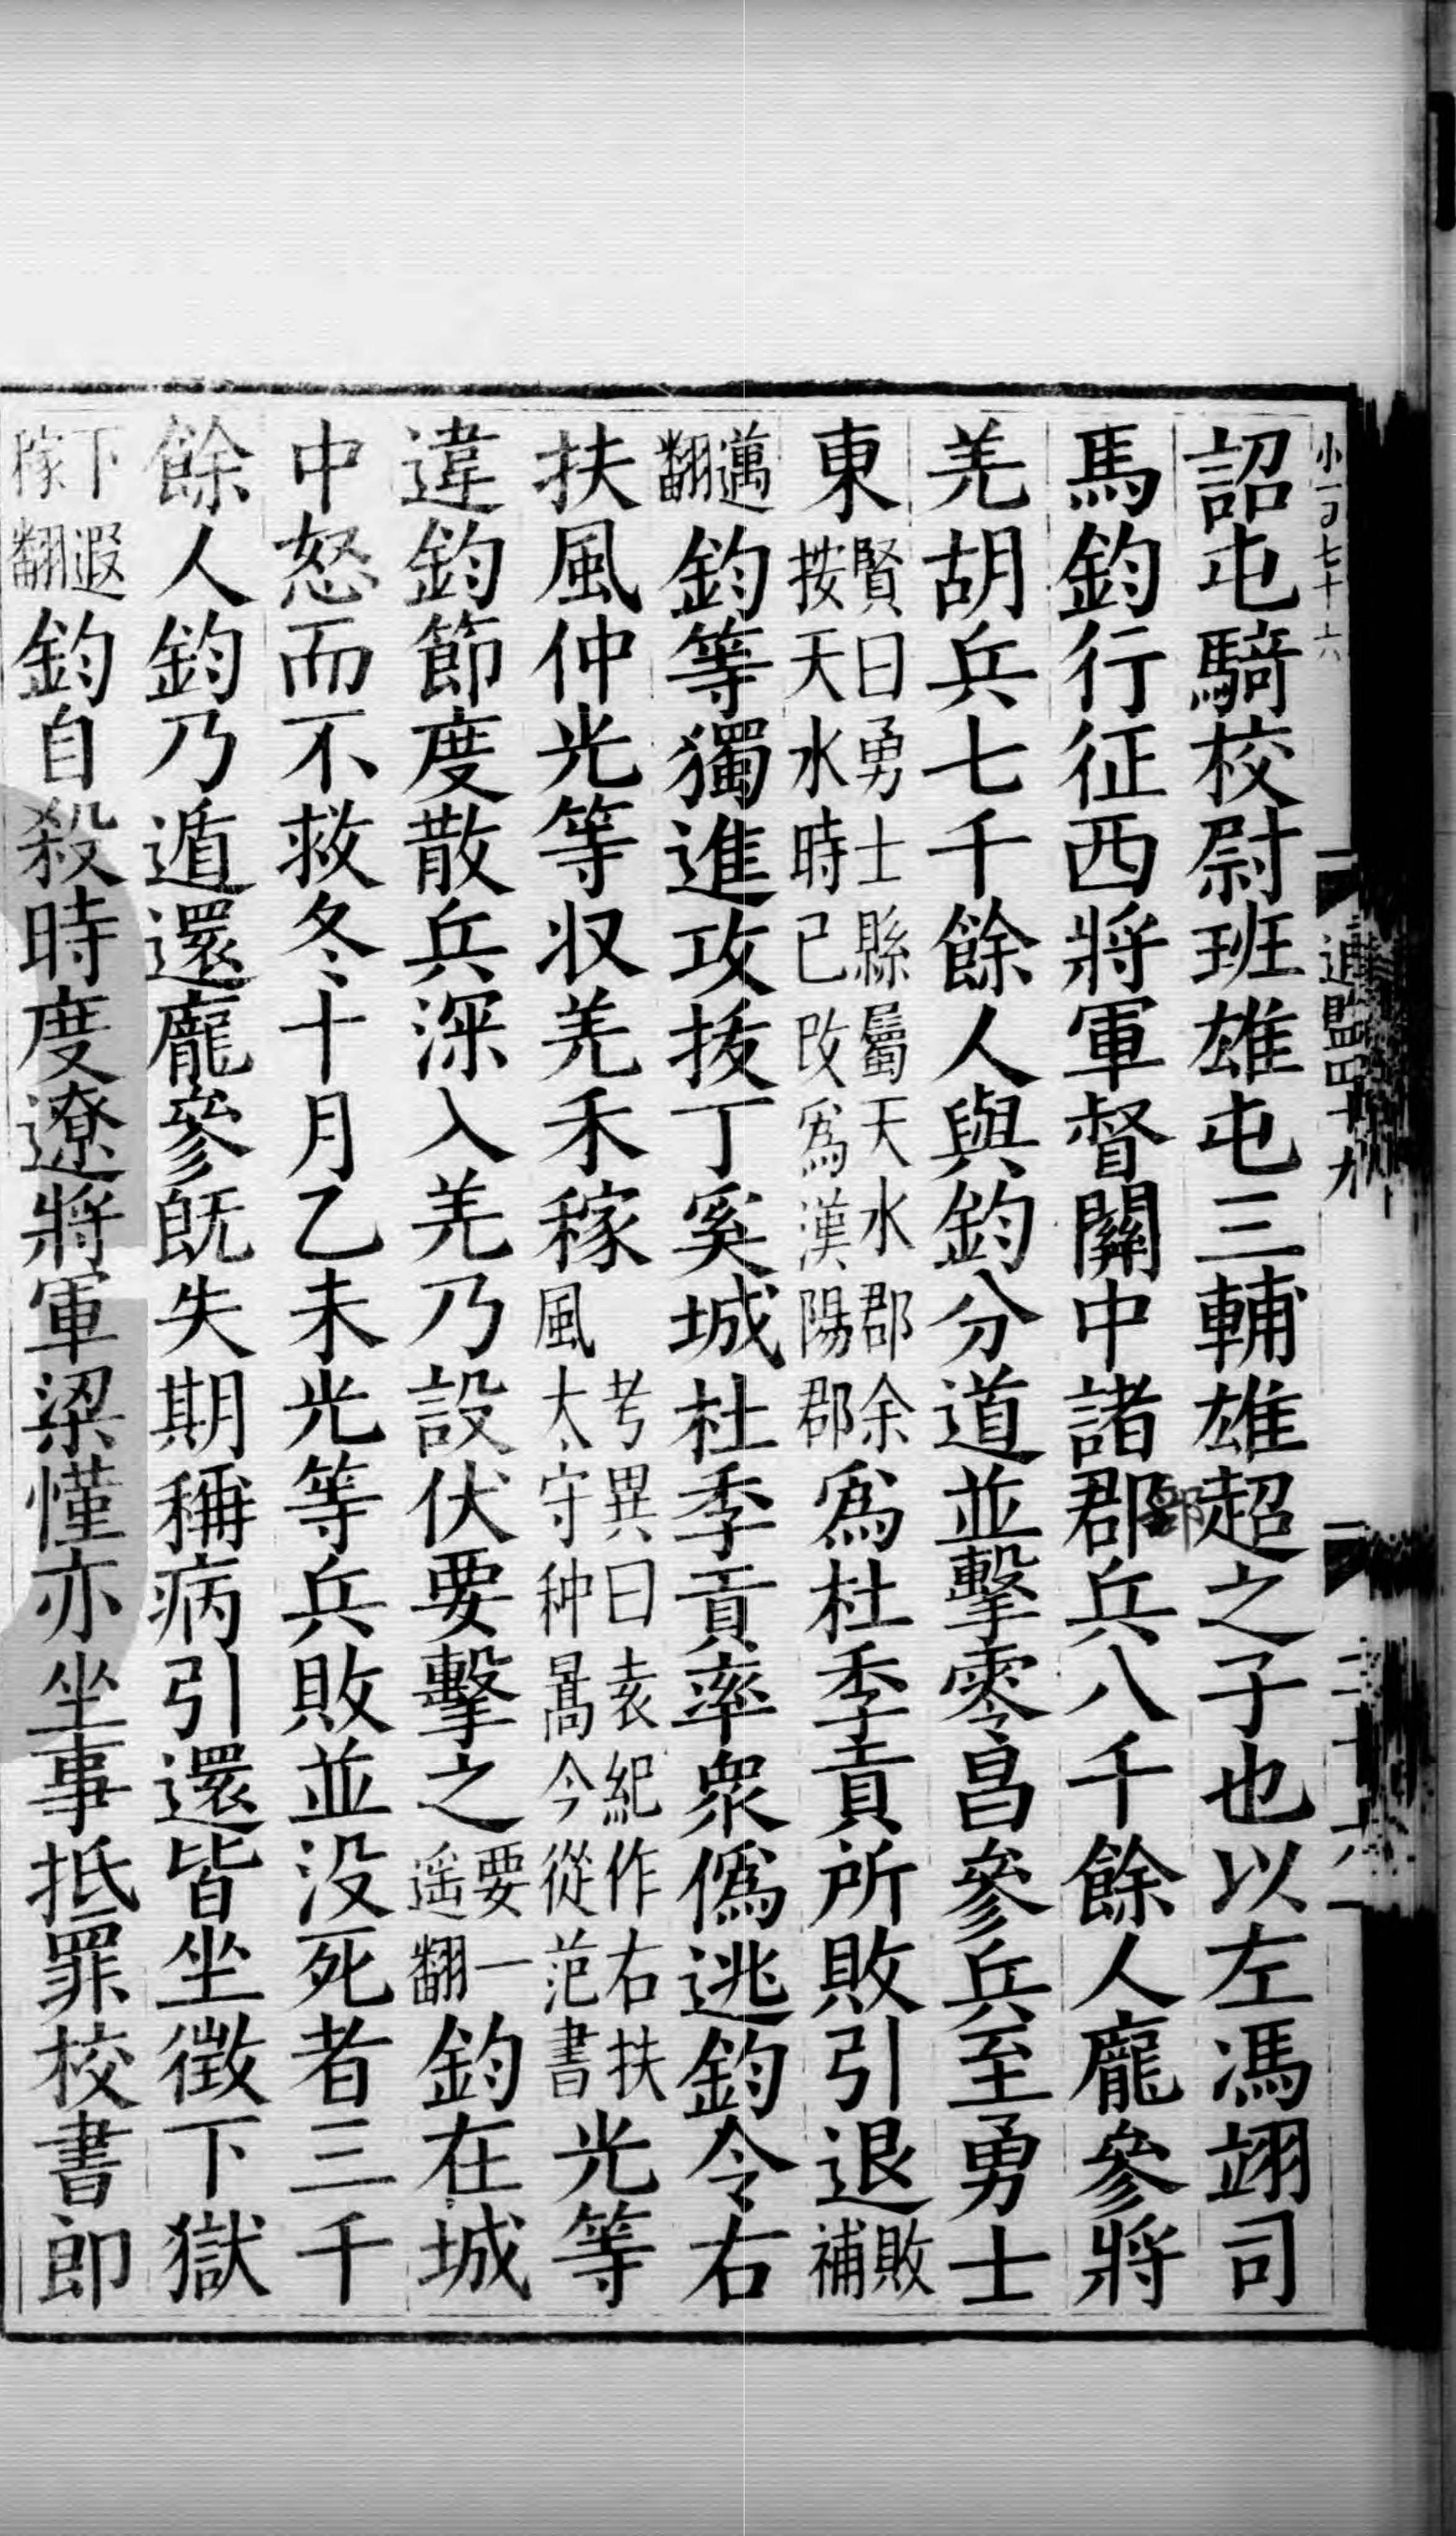 詔屯騎校尉班雄屯三輔雄超之子也以左馮翊司
馬鈞行征西將軍督關中諸郡兵八千餘人龐參將
羌胡兵七千餘人與鈞分道並擊零昌參兵至勇士
東賢曰勇士縣屬天水郡余按天水時已改爲漢陽郡爲杜季貢所敗引退敗補
邁翻鈞等獨進攻拔丁奚城杜季貢率衆僞逃鈞令右
扶風仲光等収羌禾稼考異曰袁紀作右扶風太守种暠今從范書光等
違鈞節度散兵深入羌乃設伏要擊之要一遥翻鈞在城
中怒而不救冬十月乙未光等兵敗並没死者三千
餘人鈞乃遁還龐參旣失期稱病引還皆坐徵下獄
下遐稼翻鈞自殺時度遼將軍梁慬亦坐事抵罪校書郎